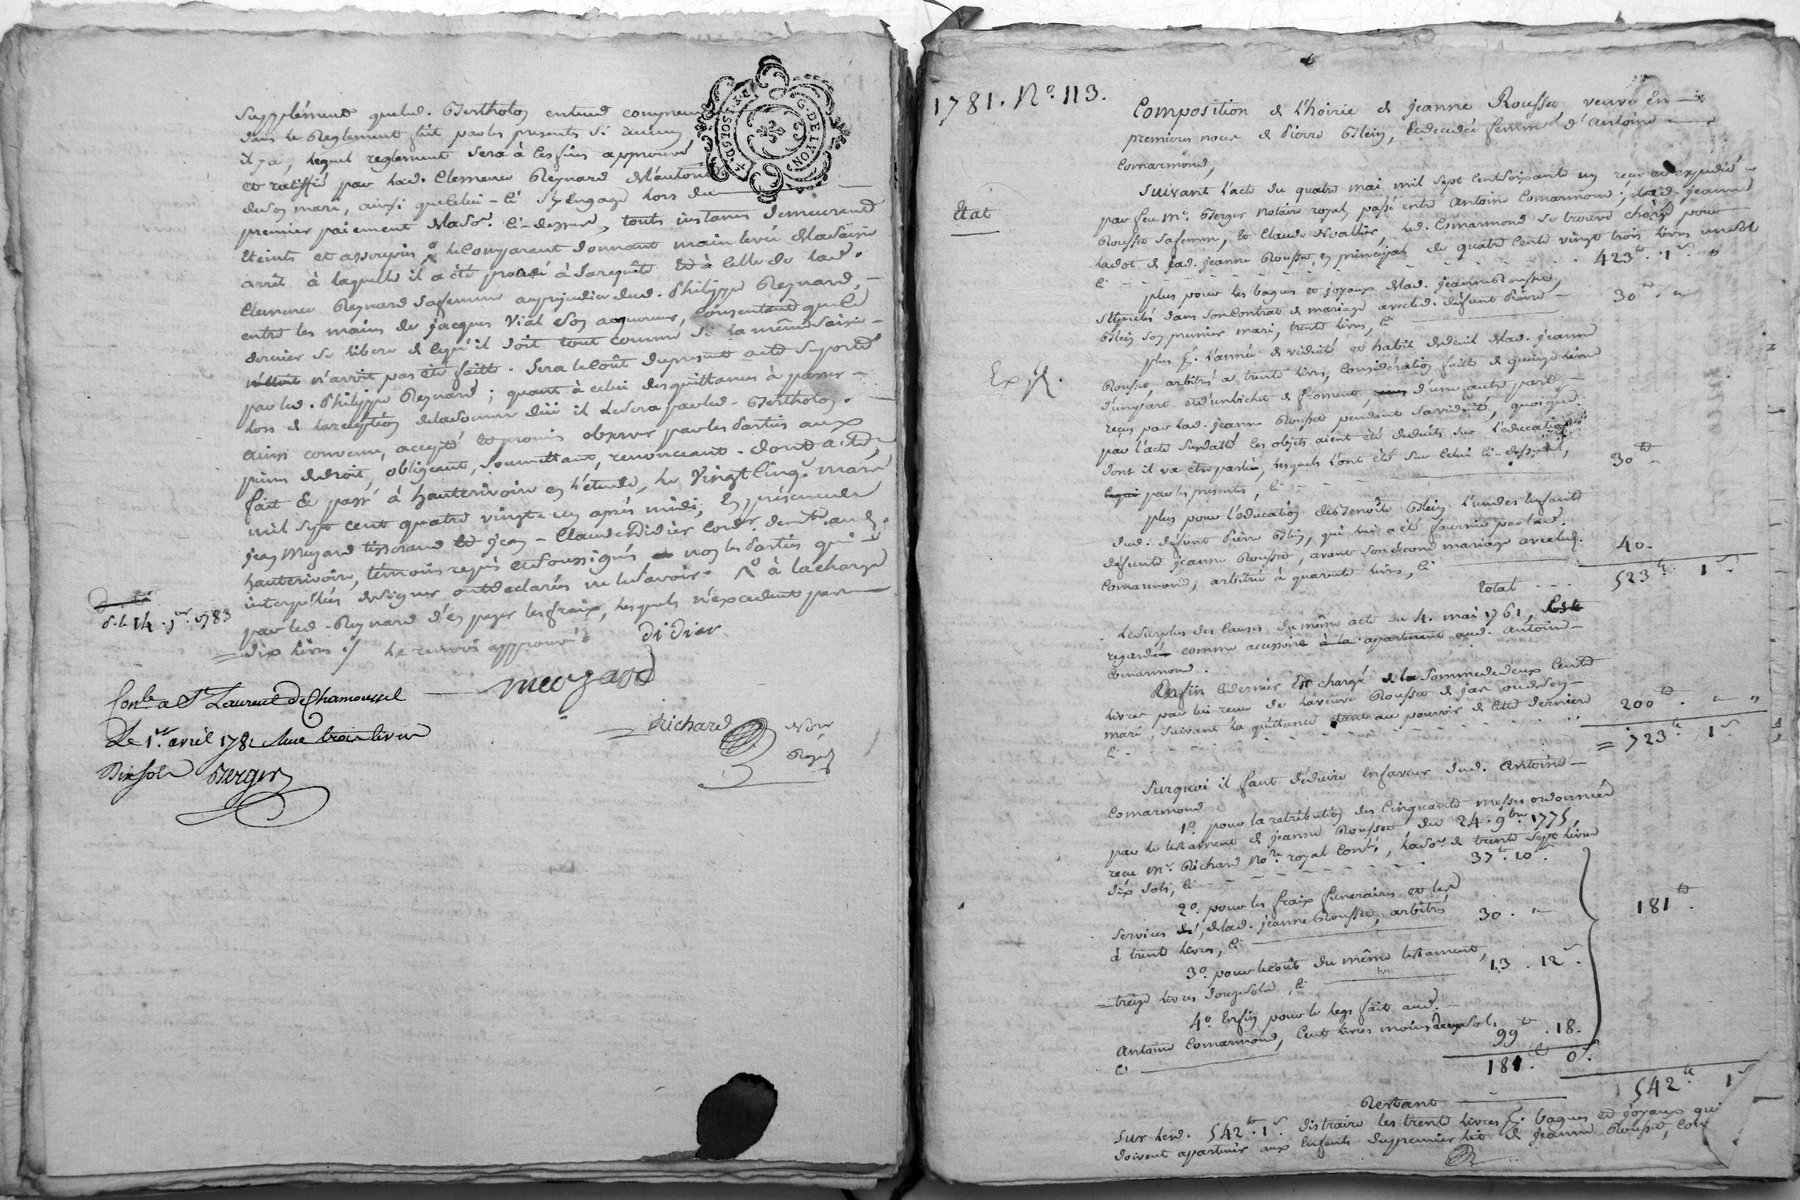 supplément que led. Bertholon entend comprendre
dans le Reglement fait par les presents si aucun
il y a, lequel reglement sera à ces fins approuvé
et ratiffié par lad. Clemence Reynard de l'autorité
de son mari, ainsi que celui-ci s'y engage lors du
premier paiement de la so.e ci-dessus, touts instances demeurants
éteints et assoupis, le comparant donnant main levée de la saisie
arrêt à laquelle il a été procédé à sa requête et à celle de lad.
Clemence Reynard sa femme au prejudice dud. Philippe Reynard,
entre les mains de jacques Vial son acquereur, consentant que ce
dernier se libere de ce qu'il doit tout comme si la même saisie
n'avoit pas été faitte. Sera le coût du present acte suporté
par led. Philippe Reynard; quant à celui des quittances à passer
lors de la réception de la somme due il le sera par led. Bertholon.
ainsi convenu, accepté et promis observer par les Parties aux
peines de droit, obligeant, soumettant, renonceant. dont acte,
fait et passé à hauterivoire en l'étude, le vingt cinq mars
mil sept cent quatre vingt-un après midi, en présence de
jean Meyzard tisserand et jean-Claude Didier cord.r dem.ts aud.
hauterivoire, témoins requis et soussignés non les Parties qui
interpellées de signer ont declarés ne le savoir. à la charge
par led. Reynard d'en payer les fraix, lesquels n'excedent pas
dix livres ./. le renvoi approuvé
d. le 14. j.er 1783
didier
meyzard
Con.le a St Laurent de Chamousset
Le 1.er avril 1781 Reçu trois livres
Dix sols Berger
Richard
no.re
Royal
G. DE LYON
1781. No. 113.
Composition de l'hoirie de jeanne Rousset veuve en
premieres noces de Pierre Blein, et decedée femme d'Antoine
Comarmond,
Etat
Suivant l'acte du quatre mai mil sept cent soixante un reçu et expedié
par feu M.e Berger notaire royal, passé entre Antoine Comarmond; lad. jeanne
Rousset sa femme, et Claude Noallier, led. Comarmond se trouve chargé pour
la dot de lad. jeanne Rousset, en principal de quatre cents vingt trois livres un sol
ci 423.tt 1.s
plus pour les bagues et joyaux de lad. jeanne Rousset,
stipulés dans son contrat de mariage avec led. défunt Pierre
Blein son premier mari, trente livres, ci 30.tt
plus p. l'année de viduité et habit de deuil de lad. jeanne
Exp.
Rousset, arbitrés a trente livres, considération faite de quinze livres
d'une part et d'un bichet de froment, d'une autre part,
reçus par lad. jeanne Rousset pendant sa viduité, quoique
par l'acte susdatté ces objets aient été deduits sur l'education
dont il va être parlé, lesquels l'ont été sur celui ci-dessus,
par les presents, ci 30.tt
plus pour l'education de Benoîte Blein l'un des enfants
dud. défunt Pierre Blein, qui lui a été fournie par lad.
défunte jeanne Rousset, avant son second mariage avec led.
Comarmond, arbitrée à quarante livres, ci 40.
total 523.tt 1.s
Le surplus des causes du même acte du 4. mai 1761,
regardé comme accessoire apartenant aud. Antoine
Comarmond.
Enfin ce dernier est chargé de la somme de deux cents
livres par lui reçue de la veuve Rousset de jas ou de son
mari, suivant la quittance étant au pouvoir de cette derniere
ci 200.tt
= 723.tt 1.s
Surquoi il faut déduire en faveur dud. Antoine
Comarmond
1.o pour la retribution des cinquante messes ordonnées
par le testament de jeanne Rousset du 24. 9.bre 1775,
reçu M.e Richard No.re royal con.lé, la so.e de trente sept livres
dix sols, ci 37.tt 10.s
2.o pour les fraix funeraires et les
services de lad. jeanne Rousset, arbitrés
à trente livres, ci 30.
181.tt
3.o pour le coût du même testament,
treize livres douze sols, ci 13. 12.s
4.o Enfin pour le legs fait aud.
Antoine Comarmond, cent livres moins deux sols
ci 99.tt 18.
181.tt 0.s
Restant 542.tt 1.s
Sur lesd. 542.tt 1.s distraire les trente livres p. bagues et joyaux qui
doivent apartenir aux enfants du premier lit de jeanne Rousset,